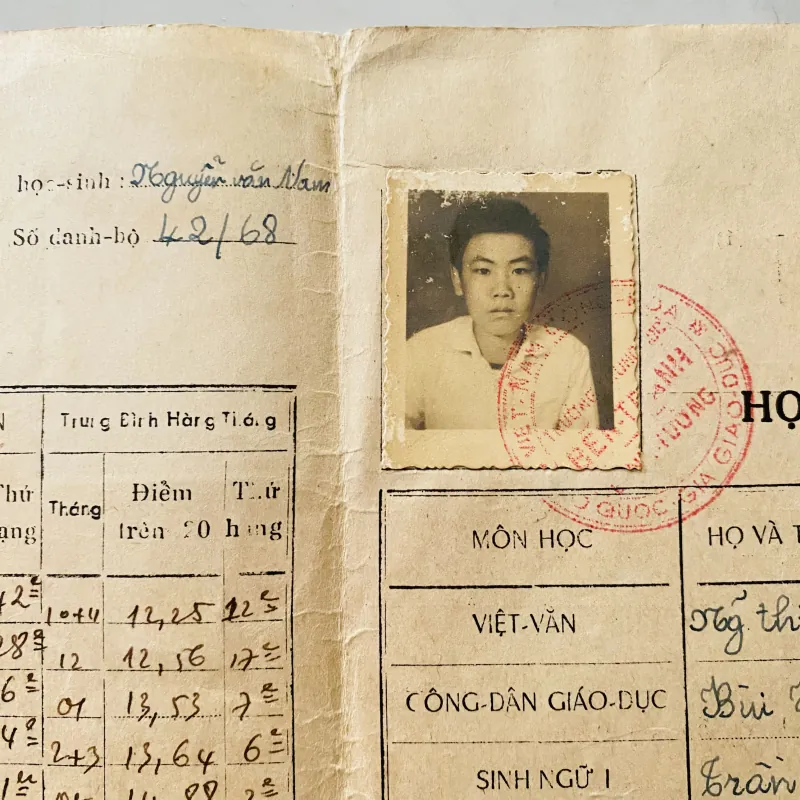 học-sinh : Nguyễn văn Nam
Số danh-bộ 42/68
Trung Bình Hàng Tháng
Thứ
Tháng
Điểm
trên 20
Thứ
hạng
10+11 12,25 12è
28è
12 12,56 17è
6è
01 13,53 7è
4è
2+3 13,64 6è
VIỆT-NAM CỘNG-HÒA
BỘ QUỐC-GIA GIÁO-DỤC
BẾN-TRANH
HỌ
MÔN HỌC
HỌ VÀ T
VIỆT-VĂN
Ng̃ thị
CÔNG-DÂN GIÁO-DỤC
Bùi
SINH NGỮ I
Trần